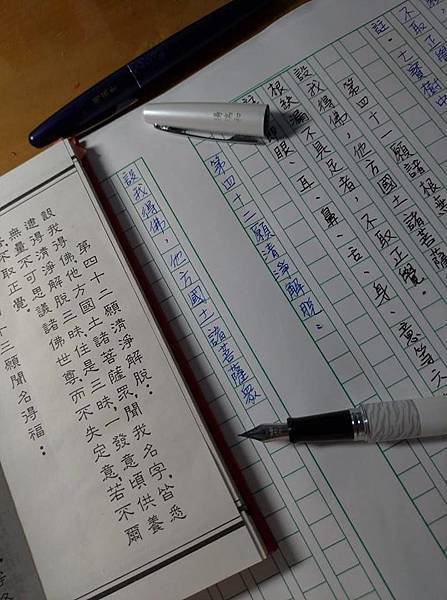 不取正覺
註:大寶樹
第四十一願諸根無
設我得佛,他方國土諸菩薩
根缺漏不具足者,不取正覺。
眼、耳、鼻、舌、身、意等六
第四十二願清淨解脫:
設我得佛,他方國土諸菩薩眾
第四十二願清淨解脫:
設我得佛他方國土諸菩薩眾,聞我名字,皆悉
逮得清淨解脫三昧,住是三昧,一發意頃,供養
無量不可思議諸佛世尊,而不失定意,若不爾
不取正覺。
十三願聞名得福: